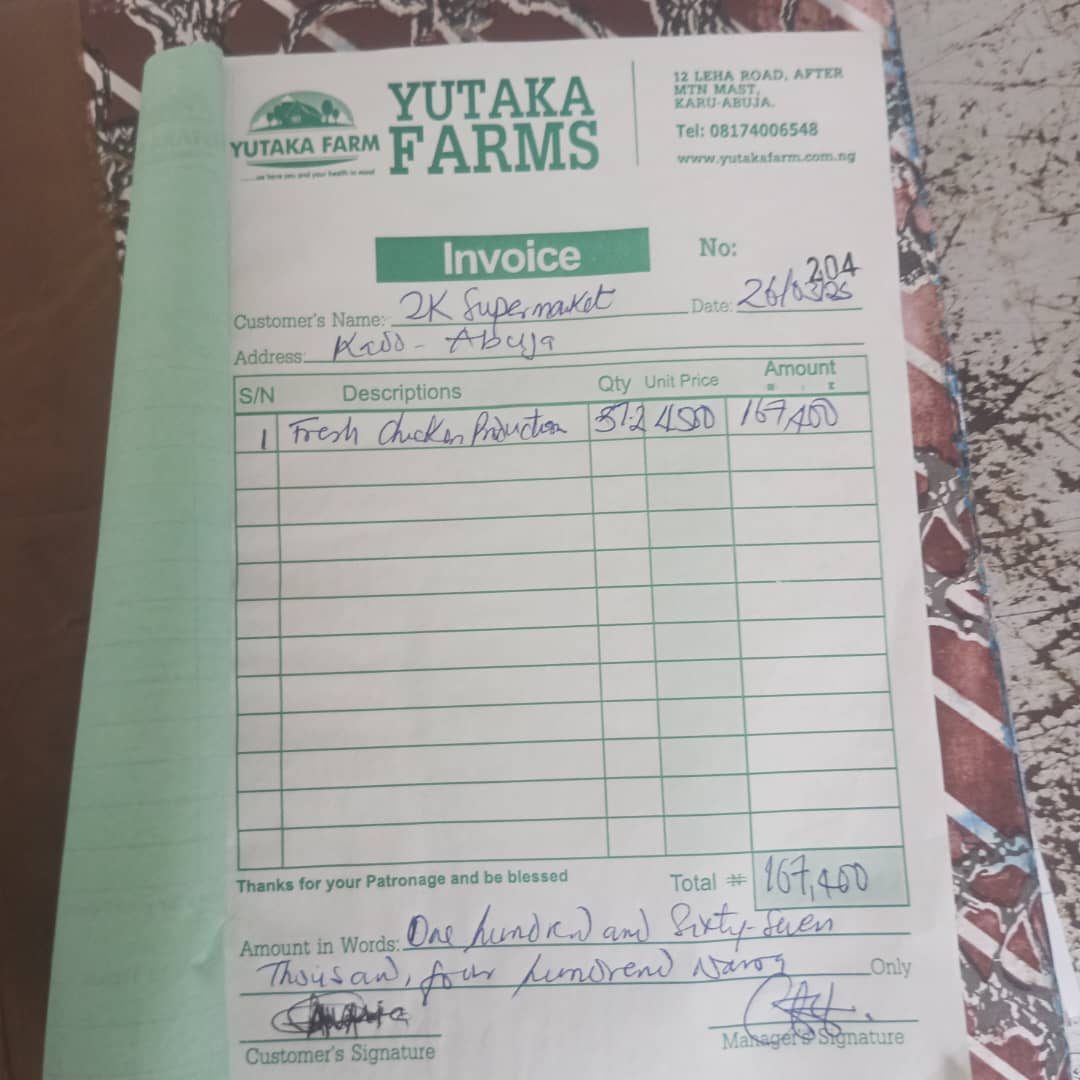 YUTAKA FARM
...we have you and your health in mind
YUTAKA
FARMS
12 LEHA ROAD, AFTER
MTN MAST,
KARU-ABUJA.
Tel: 08174006548
www.yutakafarm.com.ng
Invoice
No: 204
Customer's Name: 2K Supermarket Date: 26/03/25
Address: Kado - Abuja
S/N Descriptions Qty Unit Price Amount
1 Fresh Chicken Production 37.2 4500 167,400
Thanks for your Patronage and be blessed
Total ₦ 167,400
Amount in Words: One hundred and Sixty-Seven
Thousand, four hundrend Naira Only
Customer's Signature
Manager's Signature